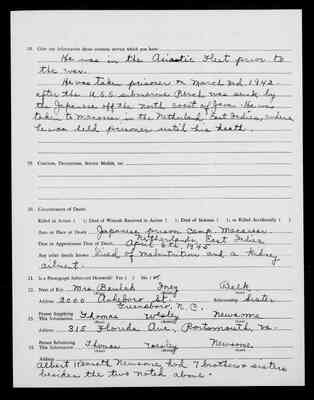 18. Give any information about overseas service which you have
He was in the Asiatic Fleet prior to
the war.
He was taken prisoner on March 3rd, 1942
after the U.S.S. submarine Perch was sunk by
the Japanese off the north coast of Java. He was
taken to Macassar in the Netherland East Indies, where
he was held prisoner until his death.
19. Citations, Decorations, Service Medals, etc.
20. Circumstances of Death:
Killed in Action ( ); Died of Wounds Received in Action ( ); Died of Sickness ( ); or Killed Accidentally ( )
Date or Place of Death Japanese prison camp Macassar
Netherlands East Indies
Date or Approximate Date of Death April 6th 1945
Any other details known Died of malnutrition and a kidney
ailment.
21. Is a Photograph Submitted Herewith? Yes ( ) No (
22. Next of Kin Mrs. Beulah Beck
Address 2000 Asheboro St. Relationship Sister
Greensboro, N. C.
23. Person Supplying This Information Thomas Wesley Newsome
Address 815 Florida Ave. Portsmouth, Va.
Person This Information Thomas Wesley Newsome
Address
Albert Newsome had 7 brothers + sisters
besides the two noted above.